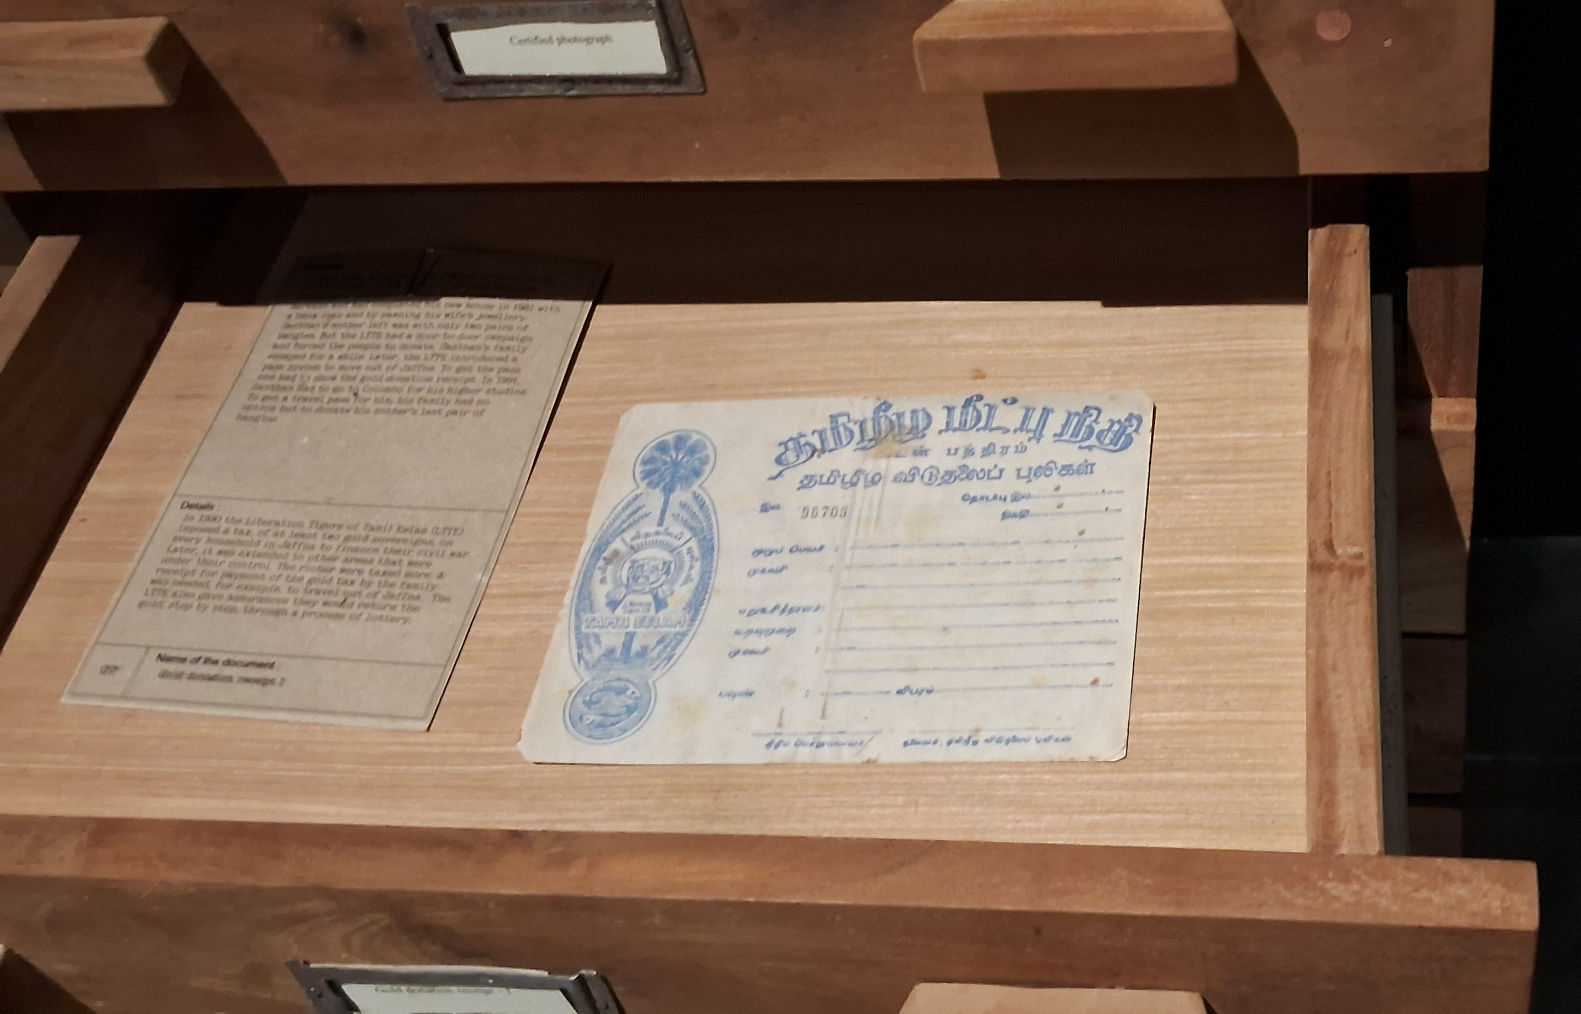 Certified photograph
his new house in 1981 with
a bank loan and by pawning his wife's jewellery.
Santhan's mother left was with only two pairs of
bangles. But the LTTE had a door to door campaign
and forced the people to donate. Santhan's family
escaped for a while. Later, the LTTE introduced a
pass system to move out of Jaffna. To get the pass
one had to show the gold donation receipt. In 1991,
Santhan had to go to Colombo for his higher studies.
To get a travel pass for him, his family had no
option but to donate his mother's last pair of
bangles.
Details :
In 1990 the Liberation Tigers of Tamil Eelam (LTTE)
imposed a tax, of at least two gold sovereigns, on
every household in Jaffna to finance their civil war.
Later, it was extended to other areas that were
under their control. The richer were taxed more. A
receipt for payment of the gold tax by the family
was needed, for example, to travel out of Jaffna. The
LTTE also gave assurances they would return the
gold, step by step, through a process of lottery.
Name of the document :
Gold donation receipt 1
தமிழீழ மீட்பு நிதி
பத்திரம்
தமிழீழ விடுதலைப் புலிகள்
இல 96705
தொடர்பு இல
திகதி
முழுப் பெயர் :
முகவரி :
உறவுமுறை :
முகவரி :
பவுண் : விபரம்
நிதிப் பொறுப்பாளர்
தலைவர், தமிழீழ விடுதலைப் புலிகள்
TAMIL EELAM
Gold donation receipt - 1